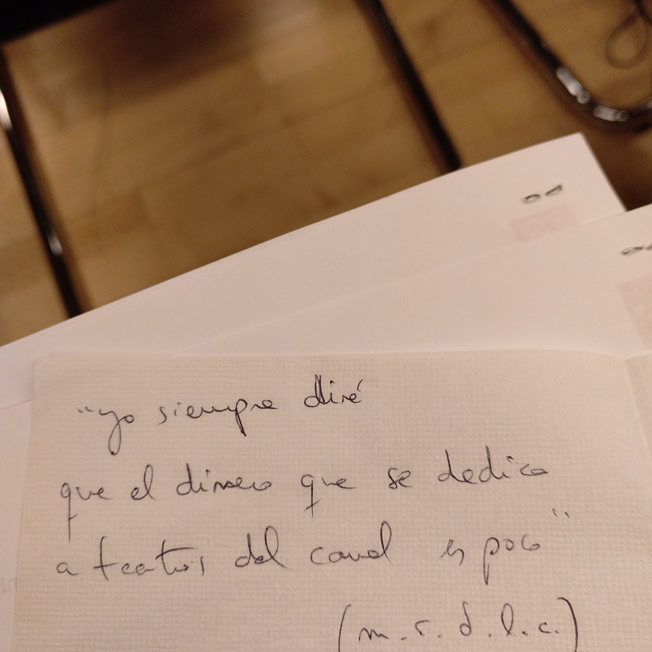 "yo siempre diré
que el dinero que se dedica
a teatros del canal es poco"
(m.r.d.l.c.)